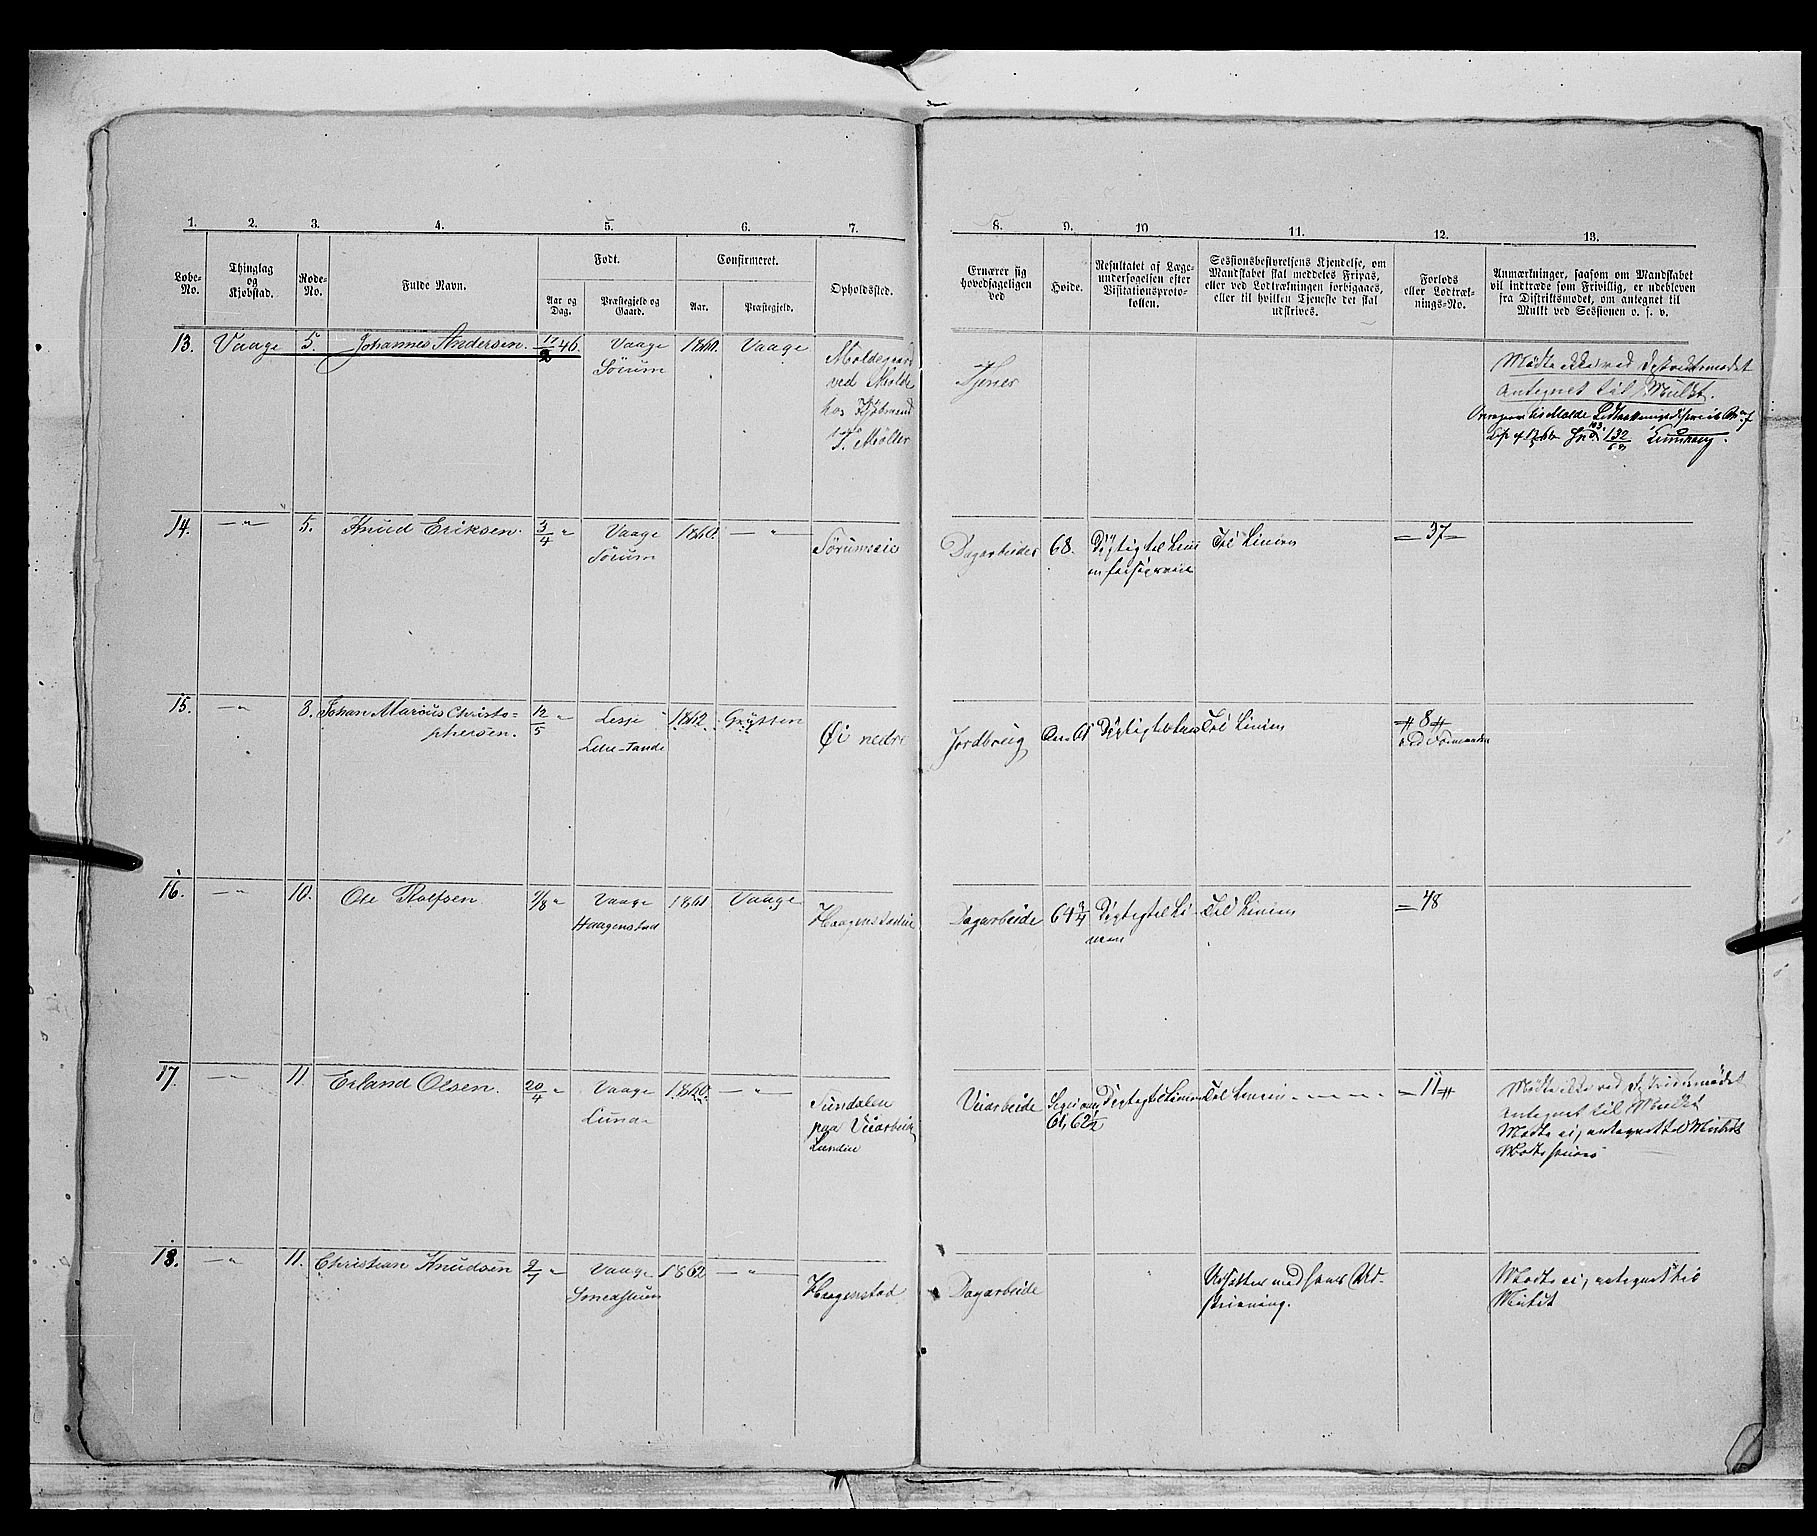 1. 2. 3. 4. 5. 6. 7. 8. 9. 10 11. 12. 13.
Løbe-No.
Thinglag og Kjøbstad.
Rode-No.
Fulde Navn.
Født.
Aar og Dag.
Præstegjeld og Gaard.
Confirmeret.
Aar.
Præstegjeld.
Opholdssted.
Ernærer sig hovedsageligen ved
Høide.
Resultatet af Læge-
undersøgelsen efter
Visitationsproto-
kollen.
Sessionsbestyrelsens Kjendelse, om
Mandskabet skal meddeles Fripas,
eller ved Lodtrækningen forbigaaes,
eller til hvilken Tjeneste det skal
udskrives.
Forlods
eller Lodtræk-
nings-No.
Anmærkninger, saasom om Mandskabet
vil indtræde som Frivillig, er udebleven
fra Distriktsmødet, om antegnet til
Mulkt ved Sessionen o. s. v.
13. Vaage 5. Johannes Andersen. 17/2 46. Vaage 1860. Vaage
Sørum
Moldegaard
ved Molde
hos Kjøbmand
P. Møller
Tjener
Mødte ikke ved Distriktsmødet
antegnet til Mulkt.
14. —"— 5. Knud Eriksen. 3/4 " Vaage 1860. —"—
Sørum
Sørumseie
Dagarbeider 68. Dygtig til Linien Til Linien = 37 =
15. —"— 8. Johan Marius Christo=
phersen. 12/5 " Lesje 1862. Grytten
Lille-Tande
Øi nedre
Jordbrug Dygtig til Linien Til Linien # 8 #
16. —"— 10. Ole Rolfsen 9/8 " Vaage 1861 Vaage
Haagenstad
Haagenstadeie
Dagarbeide 64 3/4 Dygtig til Li-
nien Til Linien = 48
17. —"— 11 Erland Olsen. 20/4 " Vaage 1860. —"—
Lunde
Sundalen
paa Veiarbeide
Lundeie
Veiarbeide 62 1/2 Dygtig til Linien Til Linien = 11 #
Mødte ikke ved Distriktsmødet
antegnet til Mulkt
Mødte ei, antegnet til Mulkt
Mødte senere
18. —"— 11. Christian Knudsen 2/7 " Vaage 1862 —"—
Haagenstad
Dagarbeide
Udsættes med hans Ud-
skrivning.
Mødte ei, antegnet til
Mulkt